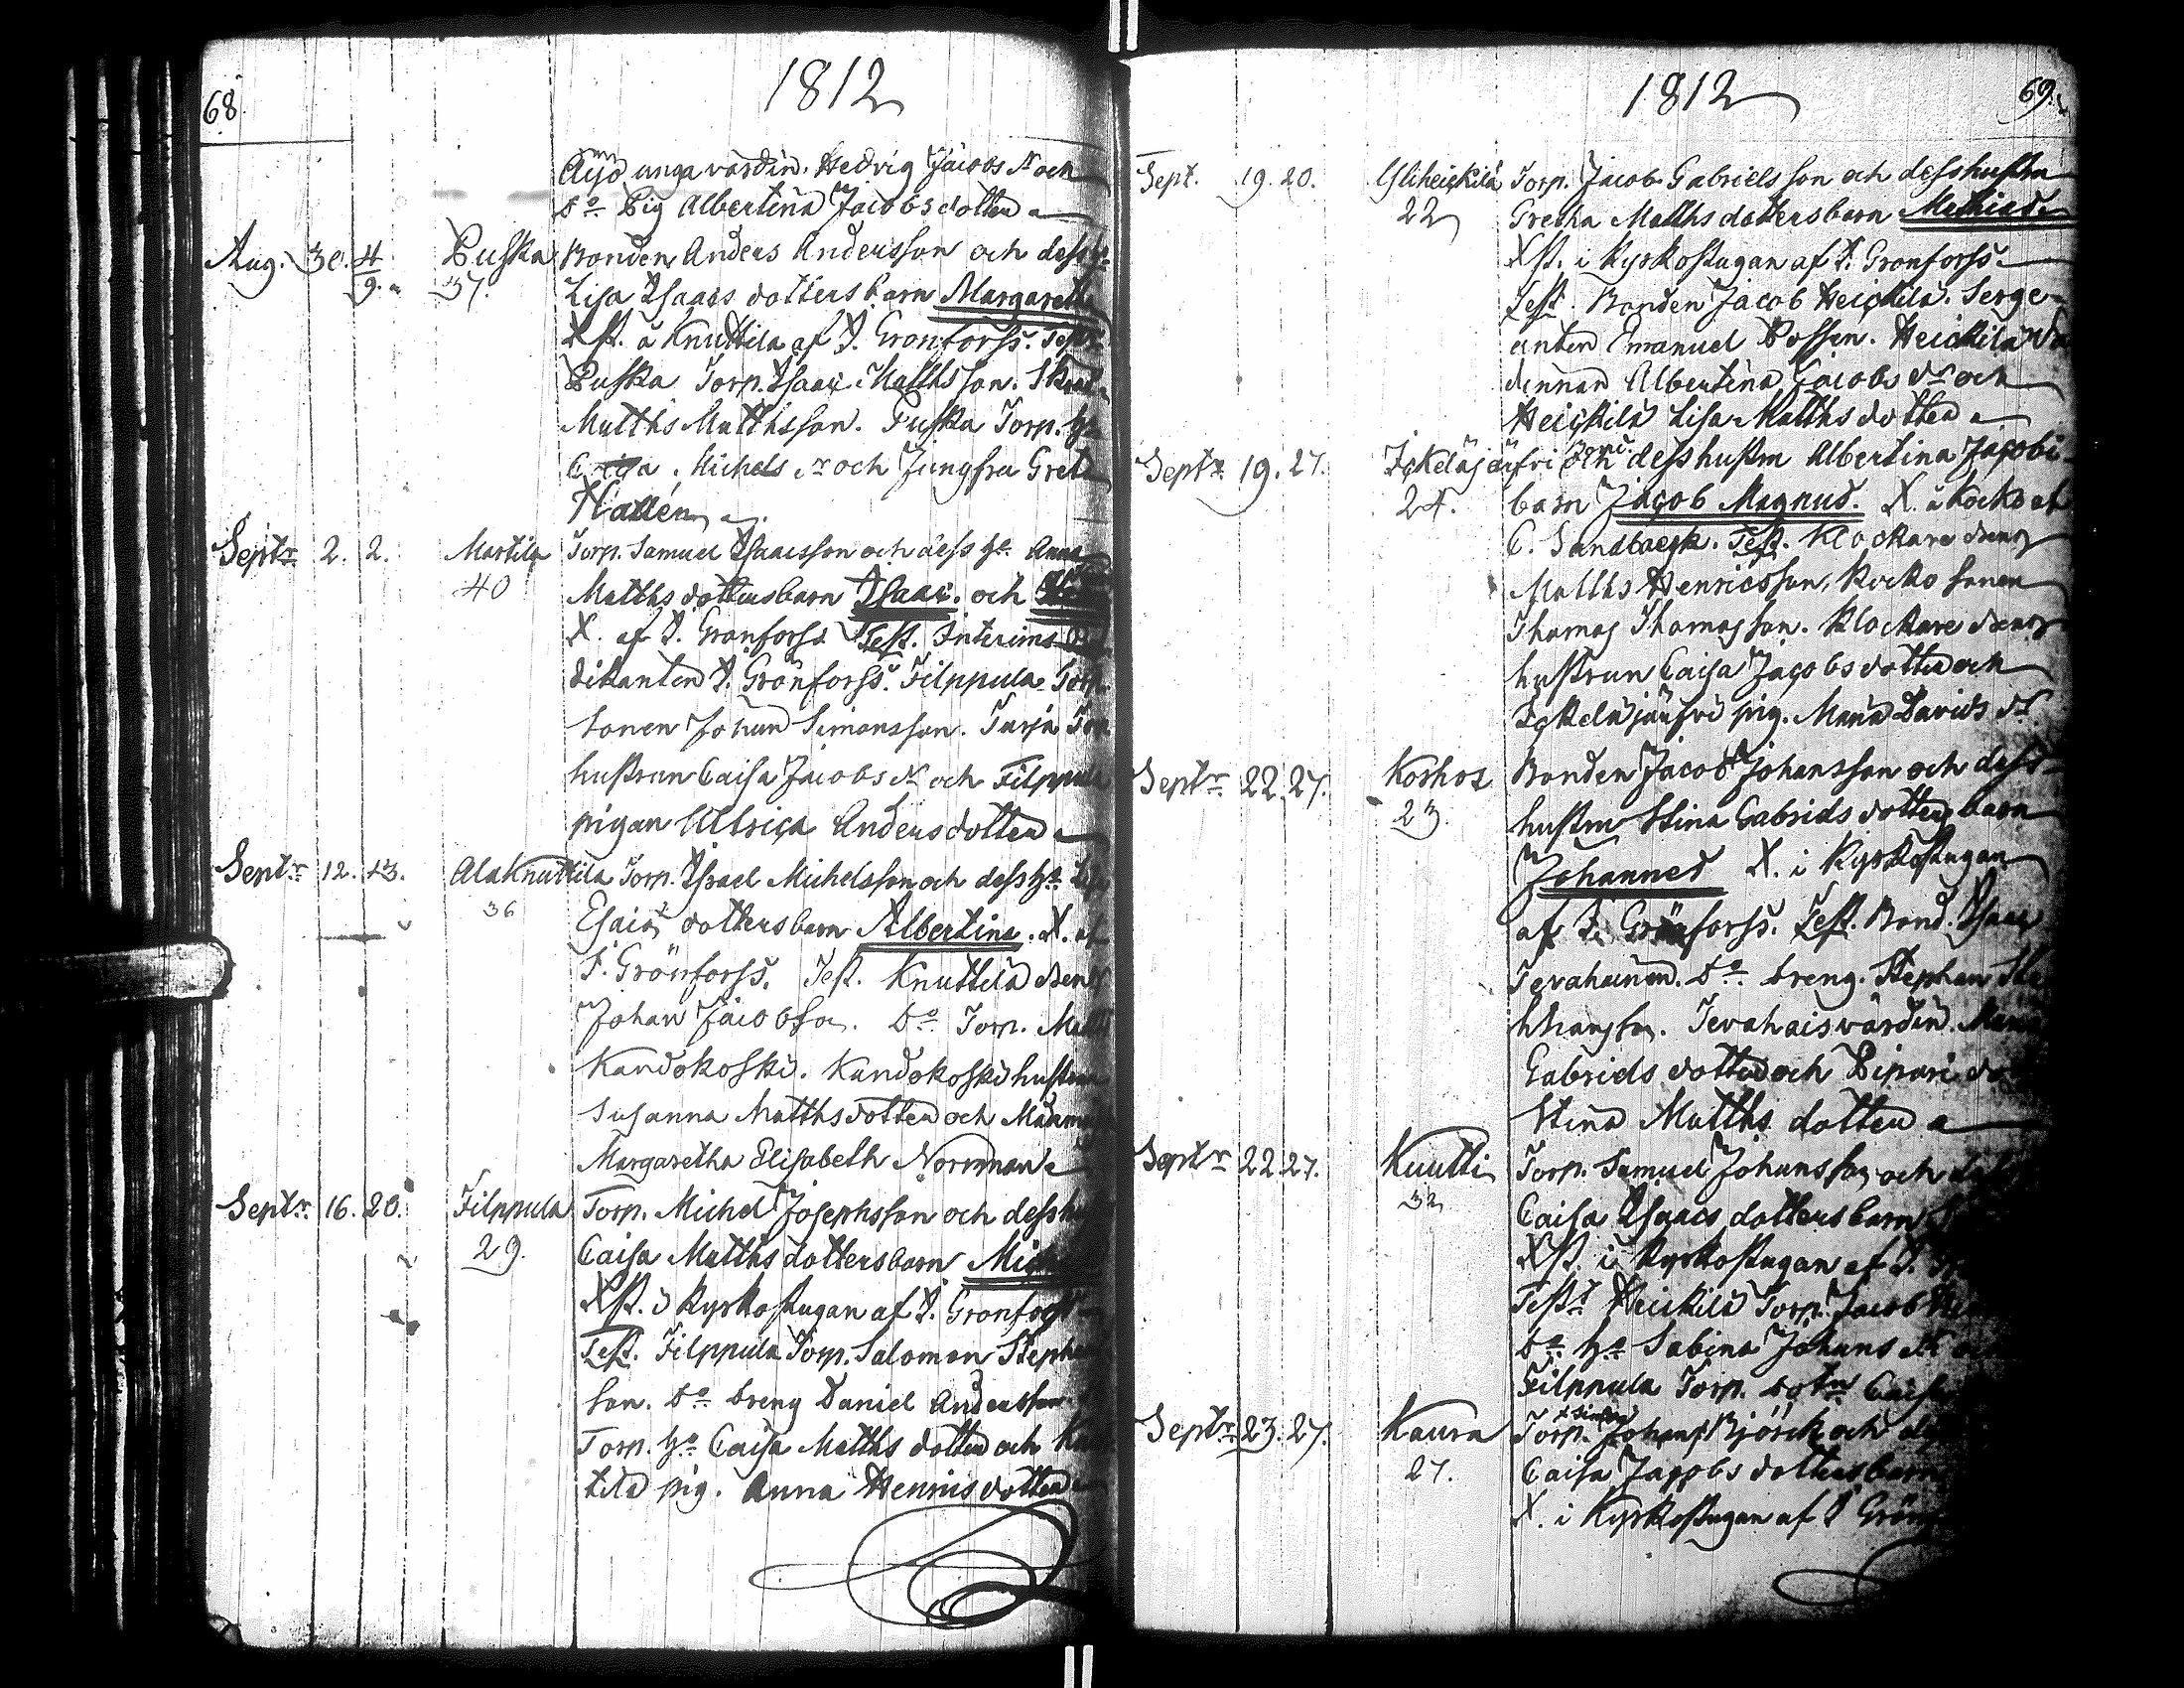 68
1812
Äijö unga värdin. Hedvig Jacobs dr och
Do Pig Albertina Jacobs dotter
Aug. 30. 4/9. Puska Bonden Anders Andersson och dess ho
37. Lisa Isaacs dotters barn Margareta
Xst. å Knuttila af I. Grönforss. Test.
Puska Torp. Isaac Matthsson.
Matths Matthsson. Puska Torp. ho
Caisa Michels dr och Jungfru Greta
Hallén
Septr 2. 2. Martila Torp. Samuel Isaacsson och dess ho Anna
40 Matths dotters barn Isaac. och
X. af I. Grönforss Test. Interims
dikanten I. Grönforss. Filppula Torp.
Sonen Johan Simonsson. Tarja Torp.
hustrun Caisa Jacobs dr och Filppula
pigan Ullrica Anders dotter
Septr 12. 13. Alaknuttila Torp. Israel Michelsson och dess ho Lisa
36 Esaias dotters barn Albertina. X. af
I. Grönforss. Test. Knuttila dreng
Johan Jacobson. Do Torp. Matts
Kandokoski. Kandokoski hustru
Susanna Matthsdotter och Mademoiselle
Margaretha Elisabeth Norrman
Septr 16. 20. Filppula Torp. Michel Josephsson och dess ho
29. Caisa Matths dotters barn
Xst. i Kyrkostugan af I. Grönforss
Test. Filppula Torp. Salomon Stephans
son. Do dreng Daniel Andersson.
Torp. ho Caisa Matths dotter och
tila pig. Anna Henrics dotter
1812
69.
Sept. 19. 20. Yliheickilä Torp. Jacob Gabrielsson och dess hustru
22 Gretha Matths dotters barn
Xst. i Kyrkostugan af I. Grönforss
Test. Bonden Jacob Heickilä. Serge-
anten Emanuel Possen. Heickilä
dinnan Albertina Jacobs dr och
Heickilä Lisa Matths dotter
Septr 19. 27. Ickeläjäufri och dess hustru Albertina Jacobs
24. barn Jacob Magnus. X. å Kocko af
C. Sandbäck. Test. Klockare dreng
Matths Henricsson. Kocko sonen
Thomas Thomasson. Klockare dreng
hustrun Caisa Jacobs dotter och
Ickeläjäufri pig. Maria Davids dr.
Septr 22. 27. Koskos Bonden Jacob Johansson och dess
23. hustru Stina Gabriels dotters barn
Johannes X. i Kyrkostugan
af I. Grönforss. Test. Bond. Isaac
Tervahainen. Do dreng. Stephan Ste
phansson. Tervahais värdin. Maria
Gabriels dotter och Pipari
Stina Matths dotter
Septr 22. 27. Knutti Torp. Samuel Johansson och
32 Caisa Isaacs dotters barn
Xst. i Kyrkostugan af I.
Test. Heickilä Torp. Jacob
Do ho Sabina Johans dr
Filppula Torp. dotr. Caisa
Septr 23. 27. Kaura Torp. Johans Björck och
27. Caisa Jacobs dotters barn
X. i Kyrkostugan af I